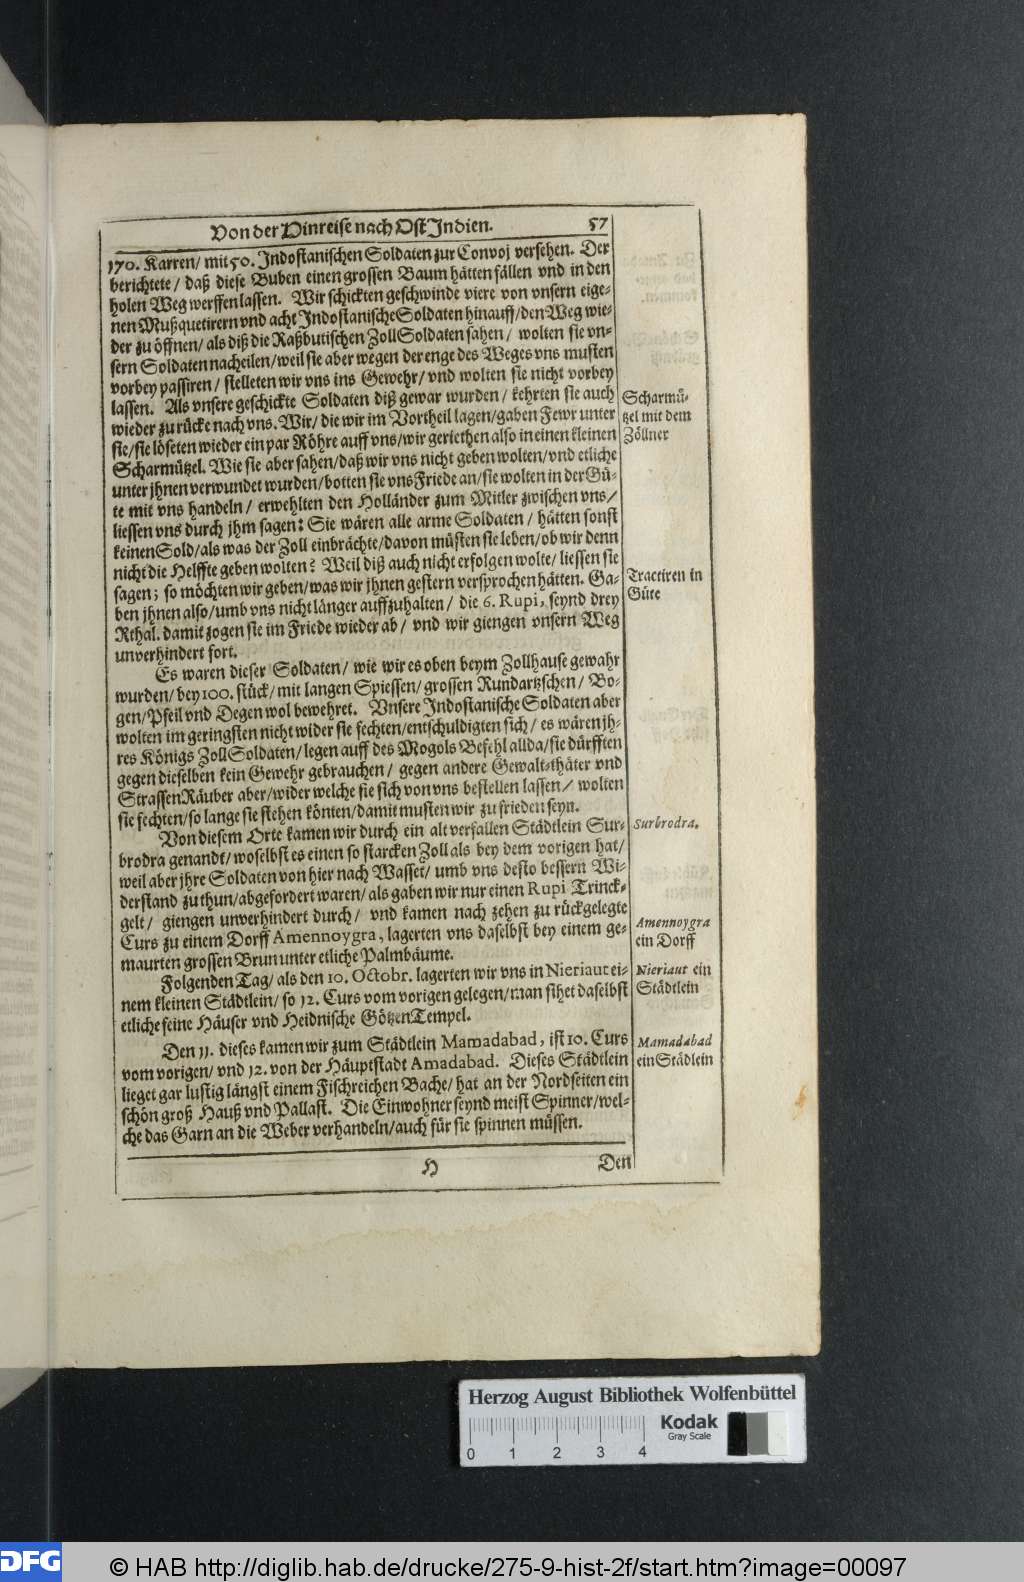 Von der Hinreise nach Ost Indien. 57
170. Karren/ mit 50. Indostanischen Soldaten zur Convoj versehen. Der
berichtete/ daß diese Buben einen grossen Baum hätten fällen vnd in den
holen Weg werffen lassen. Wir schickten geschwinde viere von vnsern eige-
nen Mußquetirern vnd acht Indostanische Soldaten hinauff/ den Weg wie-
der zu öffnen/ als diß die Raßbutischen Zoll Soldaten sahen/ wolten sie vn-
sern Soldaten nacheilen/ weil sie aber wegen der enge des Weges vns musten
vorbey passiren/ stelleten wir vns ins Gewehr/ vnd wolten sie nicht vorbey
lassen. Als vnsere geschickte Soldaten diß gewar wurden/ kehrten sie auch
wieder zu rücke nach vns. Wir/ die wir im Vortheil lagen/ gaben Fewr unter
sie/ sie löseten wieder ein par Röhre auff vns/ wir geriethen also in einen kleinen
Scharmützel. Wie sie aber sahen/ daß wir vns nicht geben wolten/ vnd etliche
unter jhnen verwundet wurden/ botten sie vns Friede an/ sie wolten in der Gü-
te mit vns handeln/ erwehlten den Holländer zum Mitler zwischen vns/
liessen vns durch jhm sagen: Sie wären alle arme Soldaten/ hätten sonst
keinen Sold/ als was der Zoll einbrächte/ davon müsten sie leben/ ob wir denn
nicht die Helffte geben wolten? Weil diß auch nicht erfolgen wolte/ liessen sie
sagen; so möchten wir geben/ was wir jhnen gestern versprochen hätten. Ga-
ben jhnen also/ umb vns nicht länger auffzuhalten/ die 6. Rupi, seynd drey
Rthal. damit zogen sie im Friede wieder ab/ vnd wir giengen vnsern Weg
unverhindert fort.
Es waren dieser Soldaten/ wie wir es oben beym Zollhause gewahr
wurden/ bey 100. stück/ mit langen Spiessen/ grossen Rundartzschen/ Bo-
gen/ Pfeil vnd Degen wol bewehret. Vnsere Indostanische Soldaten aber
wolten im geringsten nicht wider sie fechten/ entschuldigten sich/ es wären jh-
res Königs Zoll Soldaten/ legen auff des Mogols Befehl allda/ sie dürfften
gegen dieselben kein Gewehr gebrauchen/ gegen andere Gewalt-thäter vnd
Strassen Räuber aber/ wider welche sie sich von vns bestellen lassen/ wolten
sie fechten/ so lange sie stehen könten/ damit musten wir zu frieden seyn.
Von diesem Orte kamen wir durch ein alt verfallen Städtlein Sur-
brodra genandt/ woselbst es einen so starcken Zoll als bey dem vorigen hat/
weil aber jhre Soldaten von hier nach Wasset/ umb vns desto bessern Wi-
derstand zu thun/ abgefordert waren/ als gaben wir nur einen Rupi Trinck-
gelt/ giengen unverhindert durch/ vnd kamen nach zehen zu rückgelegte
Curs zu einem Dorff Amennoygra, lagerten vns daselbst bey einem ge-
maurten grossen Brun unter etliche Palmbäume.
Folgenden Tag/ als den 10. Octobr. lagerten wir vns in Nieriaut ei-
nem kleinen Städtlein/ so 12. Curs vom vorigen gelegen/ man sihet daselbst
etliche feine Häuser vnd Heidnische Götzen Tempel.
Den 11. dieses kamen wir zum Städtlein Mamadabad, ist 10. Curs
vom vorigen/ vnd 12. von der Häuptstadt Amadabad. Dieses Städtlein
lieget gar lustig längst einem Fischreichen Bache/ hat an der Nordseiten ein
schön groß Hauß vnd Pallast. Die Einwohner seynd meist Spinner/ wel-
che das Garn an die Weber verhandeln/ auch für sie spinnen müssen.
H Den
Scharmü-
tzel mit dem
Zöllner
Tractiren in
Güte
Surbrodra.
Amennoygra
ein Dorff
Nieriaut ein
Städtlein
Mamadabad
ein Städlein
Herzog August Bibliothek Wolfenbüttel
0 1 2 3 4
Kodak
Gray Scale
DFG © HAB http://diglib.hab.de/drucke/275-9-hist-2f/start.htm?image=00097